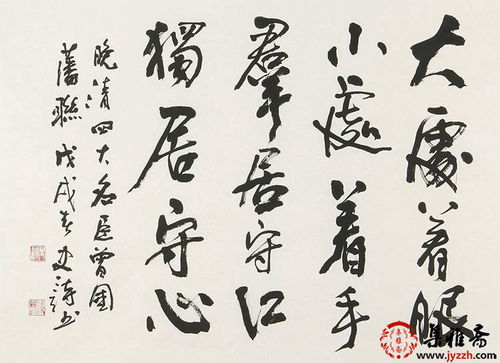 大處着眼
小處着手
羣居守口
獨居守心
晚清四大名臣曾國
藩聯 戊戌春
集雅斋
www.jyzzh.com